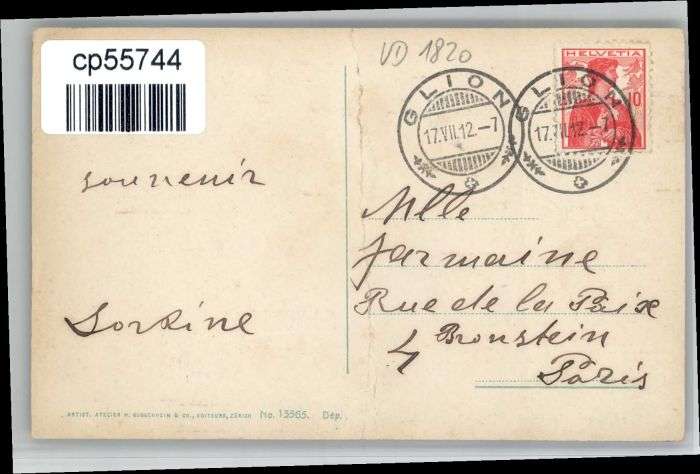 cp55744
VD 1820
HELVETIA
10
GLION
17.VII.12.–7
GLION
17.VII.12.–7
souvenir
Sorkine
Mlle
Jarmaine
Rue de la Paix
4 Bronstein
Paris
ARTIST. ATELIER H. GUGGENHEIM & CO., EDITEURS, ZÜRICH No. 13565. Dép.